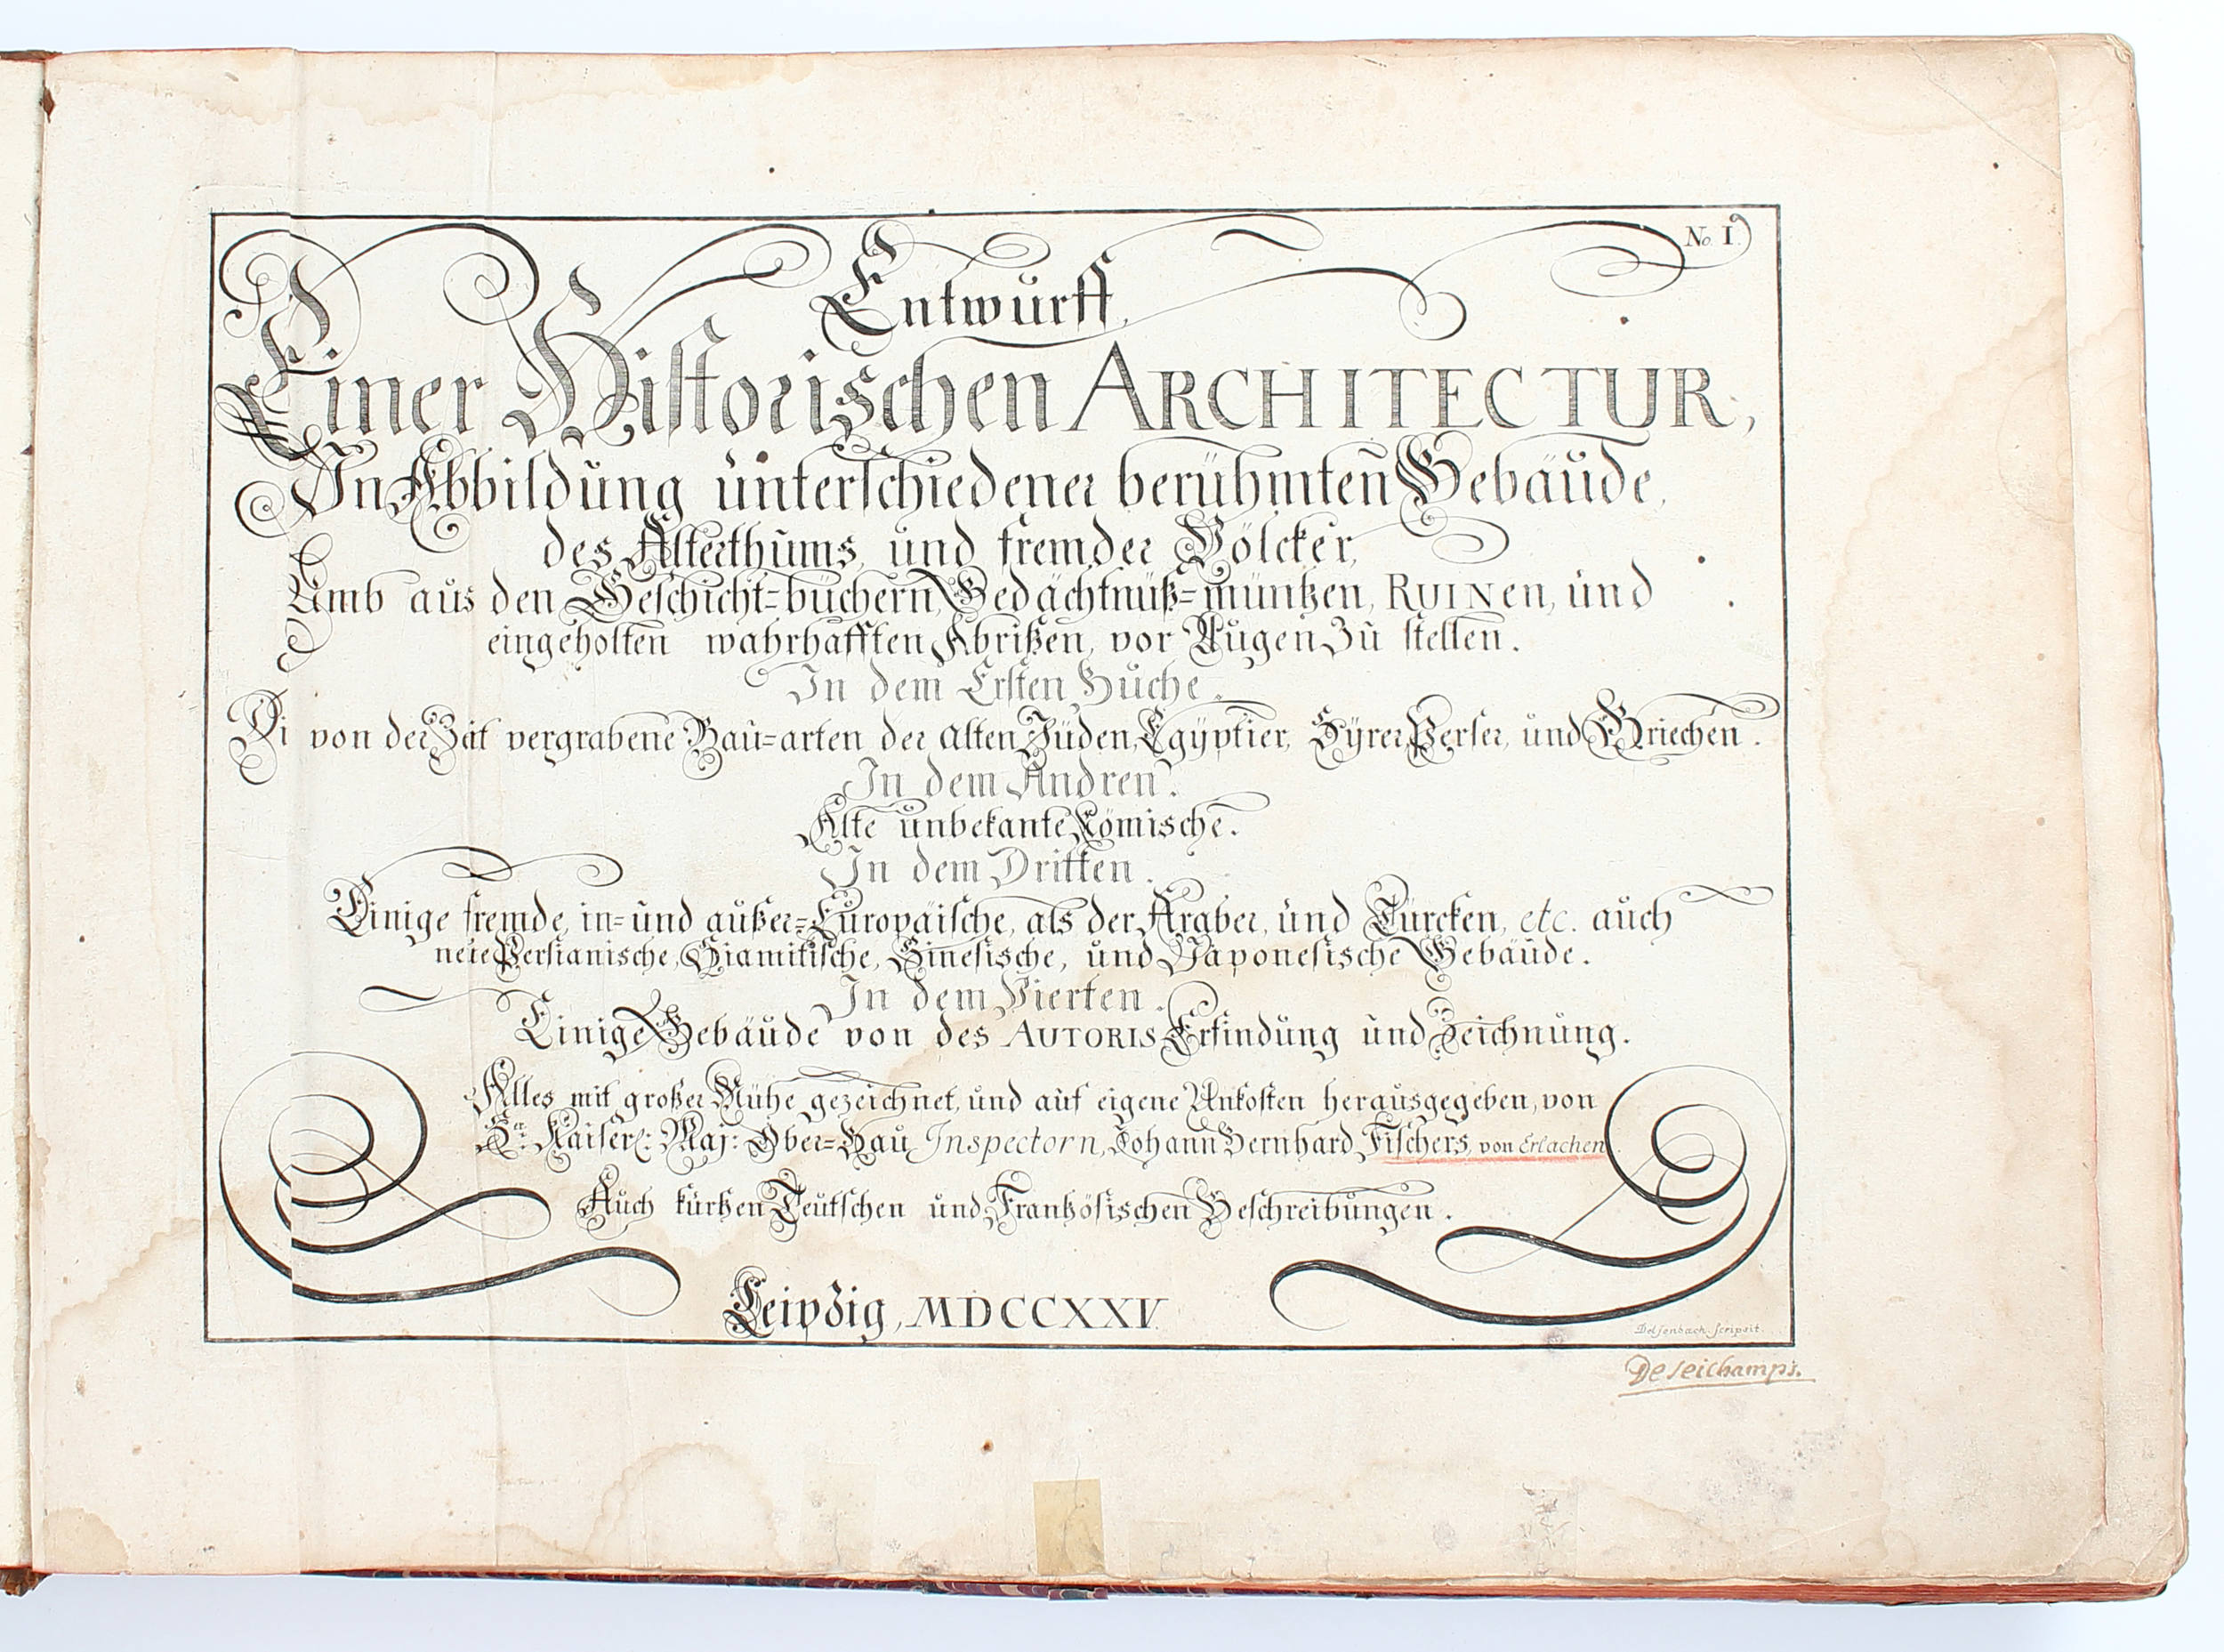 No. I.
Entwurff
Einer Historischen ARCHITECTUR,
In Abbildung unterschiedener berühmten Gebäude,
des Alterthums, und fremder Völcker,
Umb aus den Geschicht=büchern, Gedächtnüß=müntzen, RUINEN, und
eingeholten wahrhafften Abrißen, vor Augen zu stellen.
In dem Ersten Buche.
Di von der Zeit vergrabene Bau=arten der alten Jüden, Egÿptier, Sÿrer, Perser, und Griechen.
In dem Andren.
Alte unbekante Römische.
In dem Dritten.
Einige fremde, in= und außer=Europäische, als der Araber, und Türcken, etc. auch
neüe Persianische, Siamitische, Sinesische, und Japonesische Gebäude.
In dem Vierten.
Einige Gebäude von des AUTORIS Erfindung und Zeichnung.
Alles mit großer Mühe gezeichnet, und auf eigene Unkosten herausgegeben, von
Sr. Kaiserl: Maj: Ober=Bau Inspectorn, Johann Bernhard Fischers, von Erlachen
Auch kurtzen Teutschen und Frantzösischen Beschreibungen.
Leipzig, MDCCXXV.
Delsenbach scripsit.